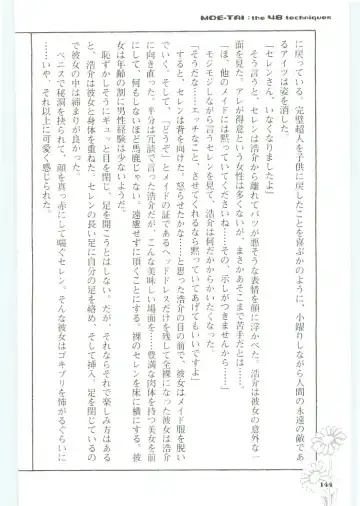 MOE-TAI : the 48 techniques
に戻っている。完璧超人を子供に戻したことを喜ぶかのように、小躍りしながら人間の永遠の敵であ
るアイツは姿を消した。
「セレンさん、いなくなりましたよ」
そう言うと、セレンは浩介から離れてバツが悪そうな表情を顔に浮かべた。浩介は彼女の意外な一
面を見た。アレが得意という女性は多くないが、まさかあそこまで苦手だとは……。
「ほ、他のメイドには黙っていてくださいね……その、示しがつきませんから……」
モジモジしながら言うセレンを見て、浩介は何だかからかいたくなった。
「そうだな……エッチなこと、させてくれるなら黙っていてあげてもいいですよ」
すると、セレンは背を向けた。怒らせたかな……と思った浩介の目の前で、彼女はメイド服を脱い
でいく。そして、「どうぞ」とメイドの証であるヘッドドレスだけを残して全裸になった彼女は浩介
に向き直った。半分は冗談で言った浩介だが、こんな美味しい場面を……豊満な肉体を持つ美女を前
にして、何もしないほど馬鹿じゃない。遠慮せずに頂くことにする。裸のセレンを床に横にする。彼
女は年齢の割に男性経験は少ないようだ。
恥ずかしそうにギュッと目を閉じ、足を開こうとはしない。だが、それならそれで楽しみ方はある
と、浩介は彼女と身体を重ねた。セレンの長い足に自分の足を絡め、そして挿入。足を閉じているの
で彼女の中は締まりが良かった。
ペニスで秘洞を抉られて、顔を真っ赤にして喘ぐセレン。そんな彼女はゴキブリを怖がるぐらいに
……いや、それ以上に可愛く感じられた。
144